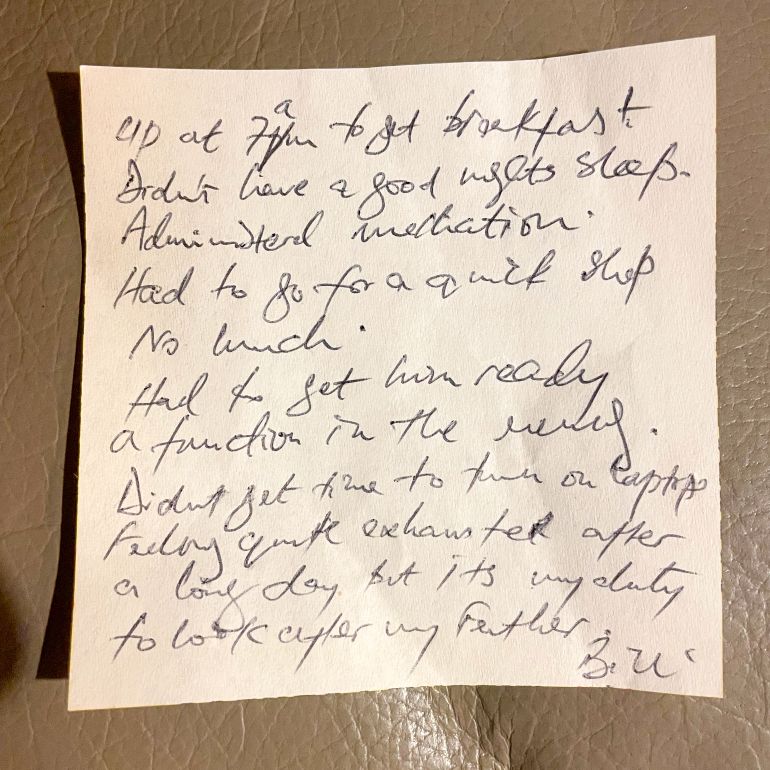 up at 7am to get breakfast.
Didn't have a good nights sleep.
Administerd medication.
Had to go for a quick shop
No lunch.
Had to get him ready
a function in the evening.
Didnt get time to turn on laptop
Feeling quite exhausted after
a long day but its my duty
to look after my Father.
Bill